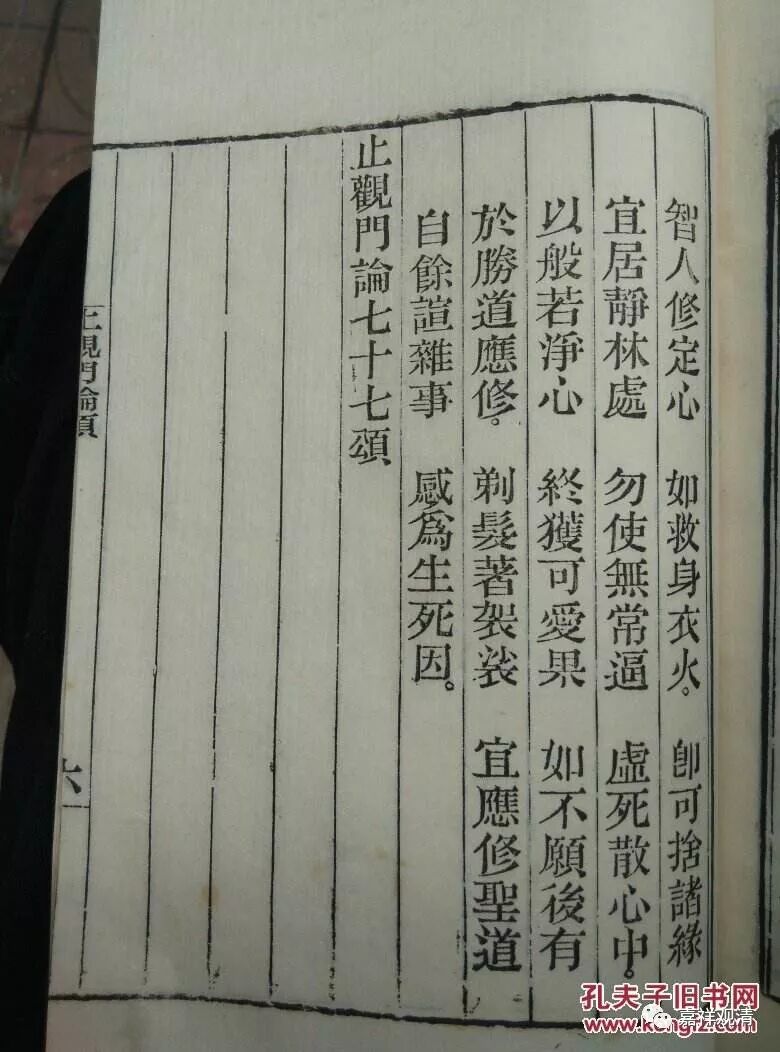 智人修定心　如救身衣火。　卽可捨諸緣
宜居靜林處　勿使無常逼　虛死散心中。
以般若淨心　終獲可愛果　如不願後有
於勝道應修。　剃髮著袈裟　宜應修聖道
自餘諠雜事　感爲生死因。
止觀門論七十七頌
止觀門論頌　六
孔夫子旧书网
www.kongfz.com
嘉洋观清